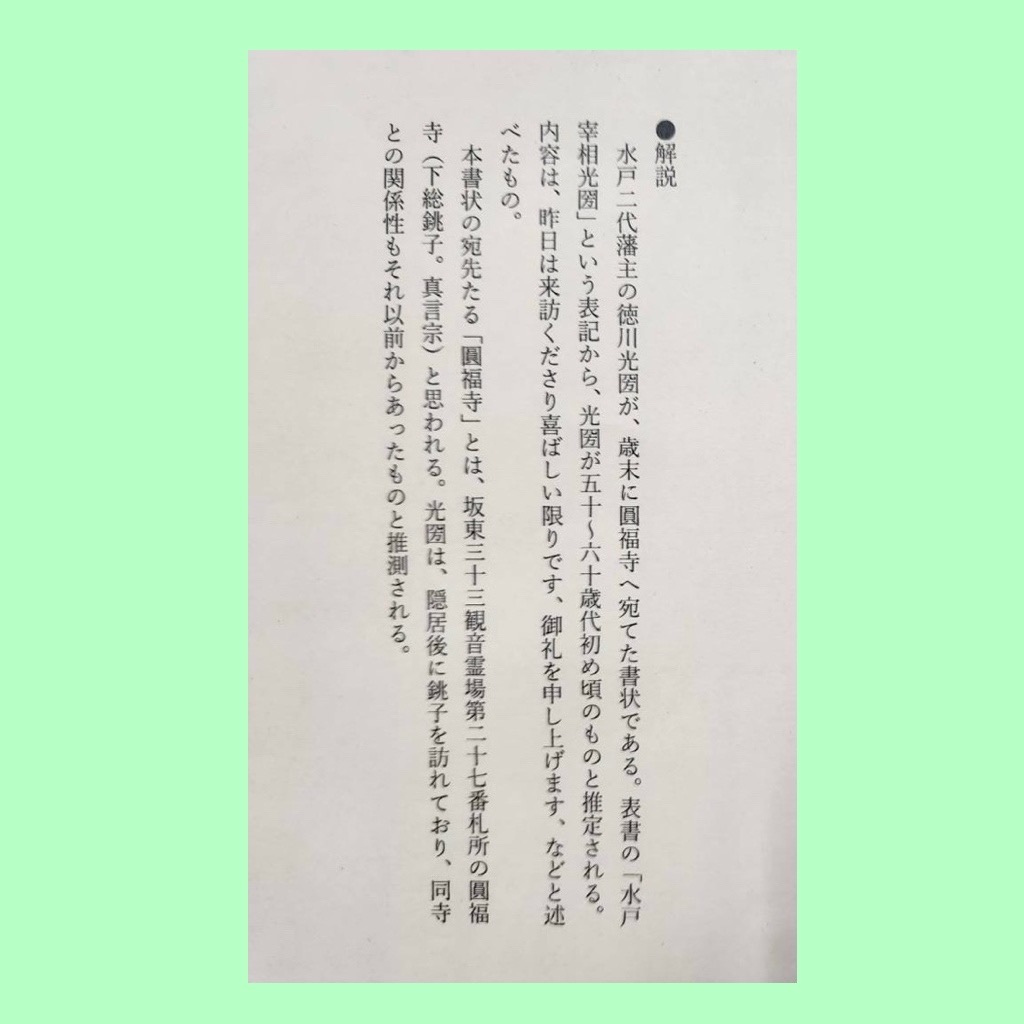 ●解説
水戸二代藩主の徳川光圀が、歳末に圓福寺へ宛てた書状である。表書の「水戸
宰相光圀」という表記から、光圀が五十〜六十歳代初め頃のものと推定される。
内容は、昨日は来訪くださり喜ばしい限りです、御礼を申し上げます、などと述
べたもの。
本書状の宛先たる「圓福寺」とは、坂東三十三観音霊場第二十七番札所の圓福
寺（下総銚子。真言宗）と思われる。光圀は、隠居後に銚子を訪れており、同寺
との関係性もそれ以前からあったものと推測される。